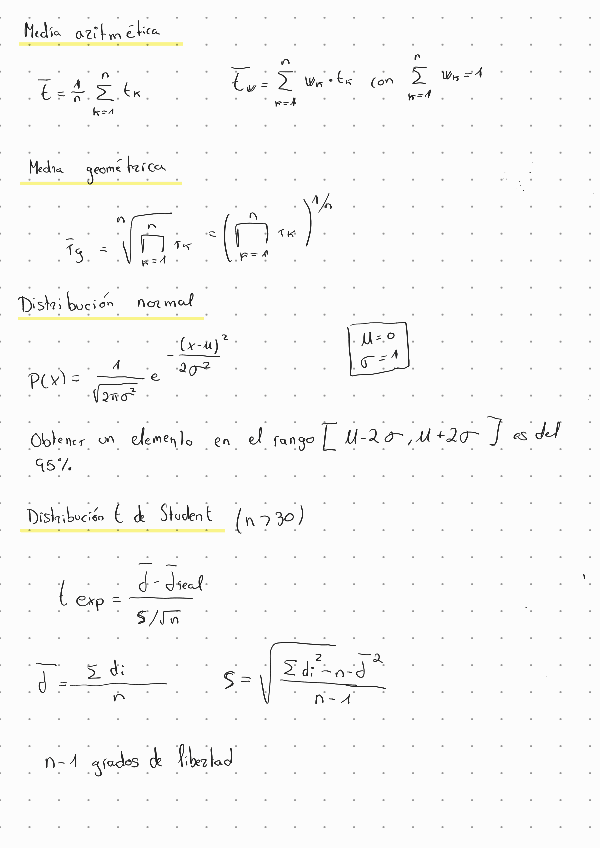 Media aritmética
t̄ = 1/n ∑_{k=1}^{n} t_k    t̄_w = ∑_{k=1}^{n} w_k · t_k con ∑_{k=1}^{n} w_k = 1
Media geométrica
r̄_g = ⁿ√(∏_{k=1}^{n} r_k) = (∏_{k=1}^{n} r_k)^{1/n}
Distribución normal
P(x) = 1/√(2πσ²) e^{-(x-μ)²/2σ²}    μ=0
σ=1
Obtener un elemento en el rango [μ-2σ, μ+2σ] es del
95%.
Distribución t de Student (n>30)
t exp = (d̄ - d̄real)/(s/√n)
d̄ = ∑ di / n    s = √((∑ di² - n·d̄²)/(n-1))
n-1 grados de libertad